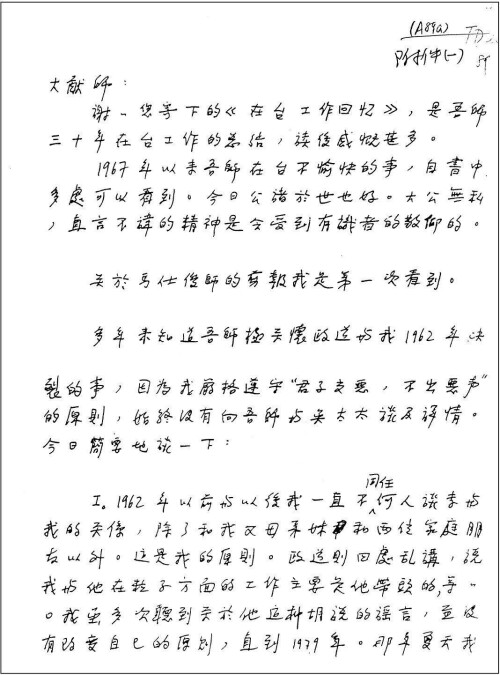 (A89a)
附彩件(一)
大猷師：
謝謝您寄下的《在台工作回忆》，是吾師
三十年在台工作的总结，读後感慨甚多。
1967年以來吾師在台不愉快的事，自書中
多處可以看到。今日公諸於世也好。大公無私
，直言不諱的精神是会受到有識者的敬仰的。
关於馬仕俊師的剪報我是第一次看到。
多年来知道吾師極关懷政道与我1962年决
裂的事，因為我嚴格遵守“君子交惡，不出惡声”
的原則，始終没有向吾師与吴太太談及詳情。
今日簡要地談一下：
I。1962年以前与以後我一直不同任何人談李与
我的关係，除了和我父母弟妹和两位家庭朋
友以外。这是我的原則。政道則四處乱講，説
我与他在粒子方面的工作主要是他帶頭的，等等
。我虽多次聽到关於他這种胡説的谣言，並没
有改变自己的原則，直到1979年。那年夏天我